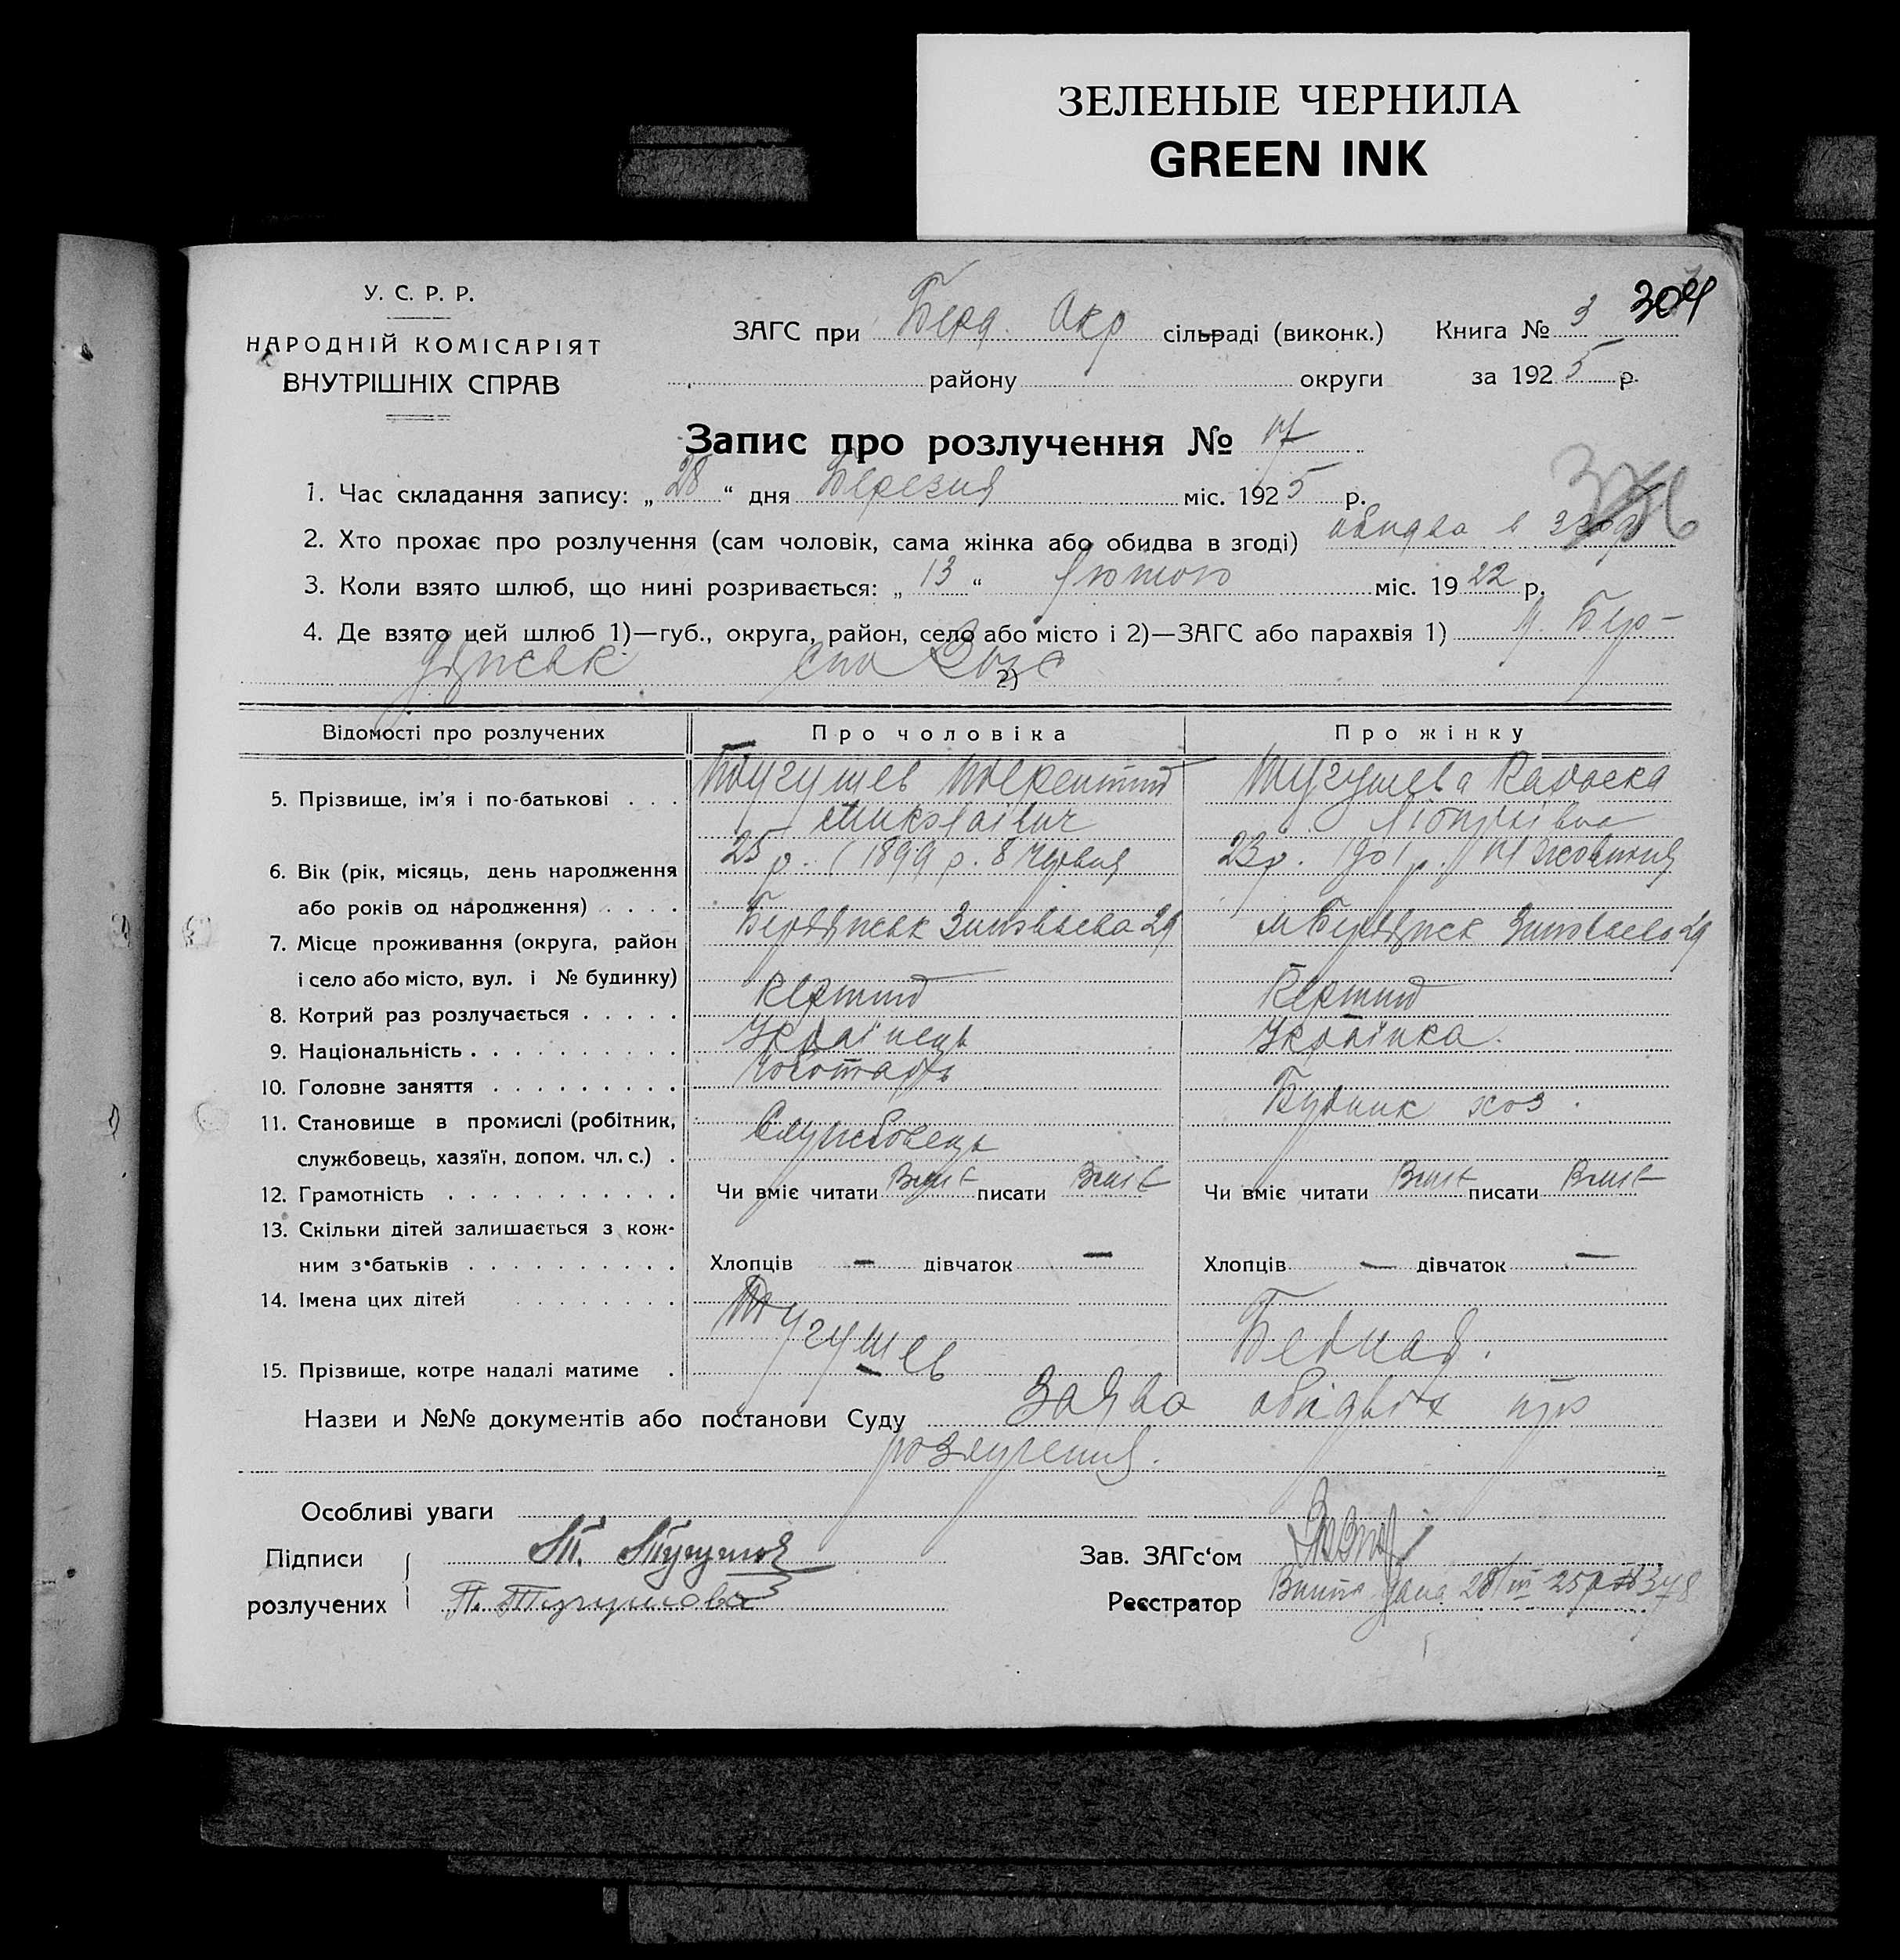 ЗЕЛЕНЫЕ ЧЕРНИЛА
GREEN INK
У. С. Р. Р.
НАРОДНІЙ КОМІСАРІЯТ
ВНУТРІШНІХ СПРАВ
304
ЗАГС при Берд. Окр сільраді (виконк.) Книга № 3
району округи за 1925 р.
Запис про розлучення № 17
1. Час складання запису: „28“ дня Березня міс. 1925 р.
2. Хто прохає про розлучення (сам чоловік, сама жінка або обидва в згоді) обидва в згоді
3. Коли взято шлюб, що нині розривається: „13“ Лютого міс. 1922 р.
4. Де взято цей шлюб 1)—губ., округа, район, село або місто і 2)—ЗАГС або парахвія 1) м. Бер-
дянськ 2)
Відомості про розлучених Про чоловіка Про жінку
5. Прізвище, ім'я і по-батькові . . . Тугушев Терентий Миколаівич
Тугушева
6. Вік (рік, місяць, день народження або років од народження) . . . . 25 р. (1899 р. 8 Червня
23 р. 1901 р. Жовтня
7. Місце проживання (округа, район і село або місто, вул. і № будинку) Бердянськ Зиновьева 29
м Бердянск Зиновьева 29
8. Котрий раз розлучається . . . . . Перший
Перший
9. Національність . . . . . . . . . . Українець
Українка.
10. Головне заняття . . . . . . . . . Чоботарь
11. Становище в промислі (робітник, службовець, хазяїн, допом. чл. с.) . Службовець
12. Грамотність . . . . . . . . . . . Чи вміє читати Вміє писати Вміє
Чи вміє читати Вміє писати Вміє
13. Скільки дітей залишається з кож-
ним з батьків . . . . . . . . . . Хлопців — дівчаток —
Хлопців — дівчаток —
14. Імена цих дітей . . . . . . . .
15. Прізвище, котре надалі матиме . Тугушев
Бедная.
Назви и №№ документів або постанови Суду Заява обидвох про
розлучення.
Особливі уваги
Підписи Т. Тугушов Зав. ЗАГс‘ом
розлучених П. Тугушова Реєстратор дана 28/III-25 р.